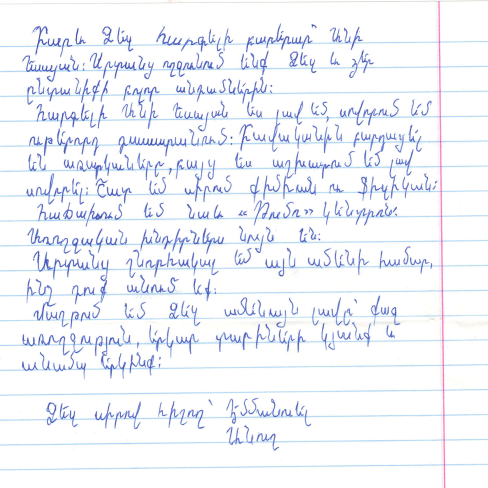 Բարև Ձեզ հարգելի բարերար՝ Անի
Եսայան: Սրտանց ողջունում ենք Ձեզ և ձեր
ընտանիքի բոլոր անդամներին:
Հարգելի Անի Եսայան ես լավ եմ, սովորում եմ
ութերորդ դասարանում: Բավականին բարդացել
են առարկաները, բայց ես աշխատում եմ լավ
սովորել: Շատ եմ սիրում քիմիան ու ֆիզիկան:
Հաճախում եմ նաև «Թումո» կենտրոն:
Առողջական խնդիրներս նույն են:
Սրտանց շնորհակալ եմ այն ամենի համար,
ինչ դուք անում եք:
Մաղթում եմ Ձեզ ամենայն լավը՝ քաջ
առողջություն, երկար տարիների կյանք և
անամպ երկինք:
Ձեզ սիրող հիշող՝ Էմմանուել